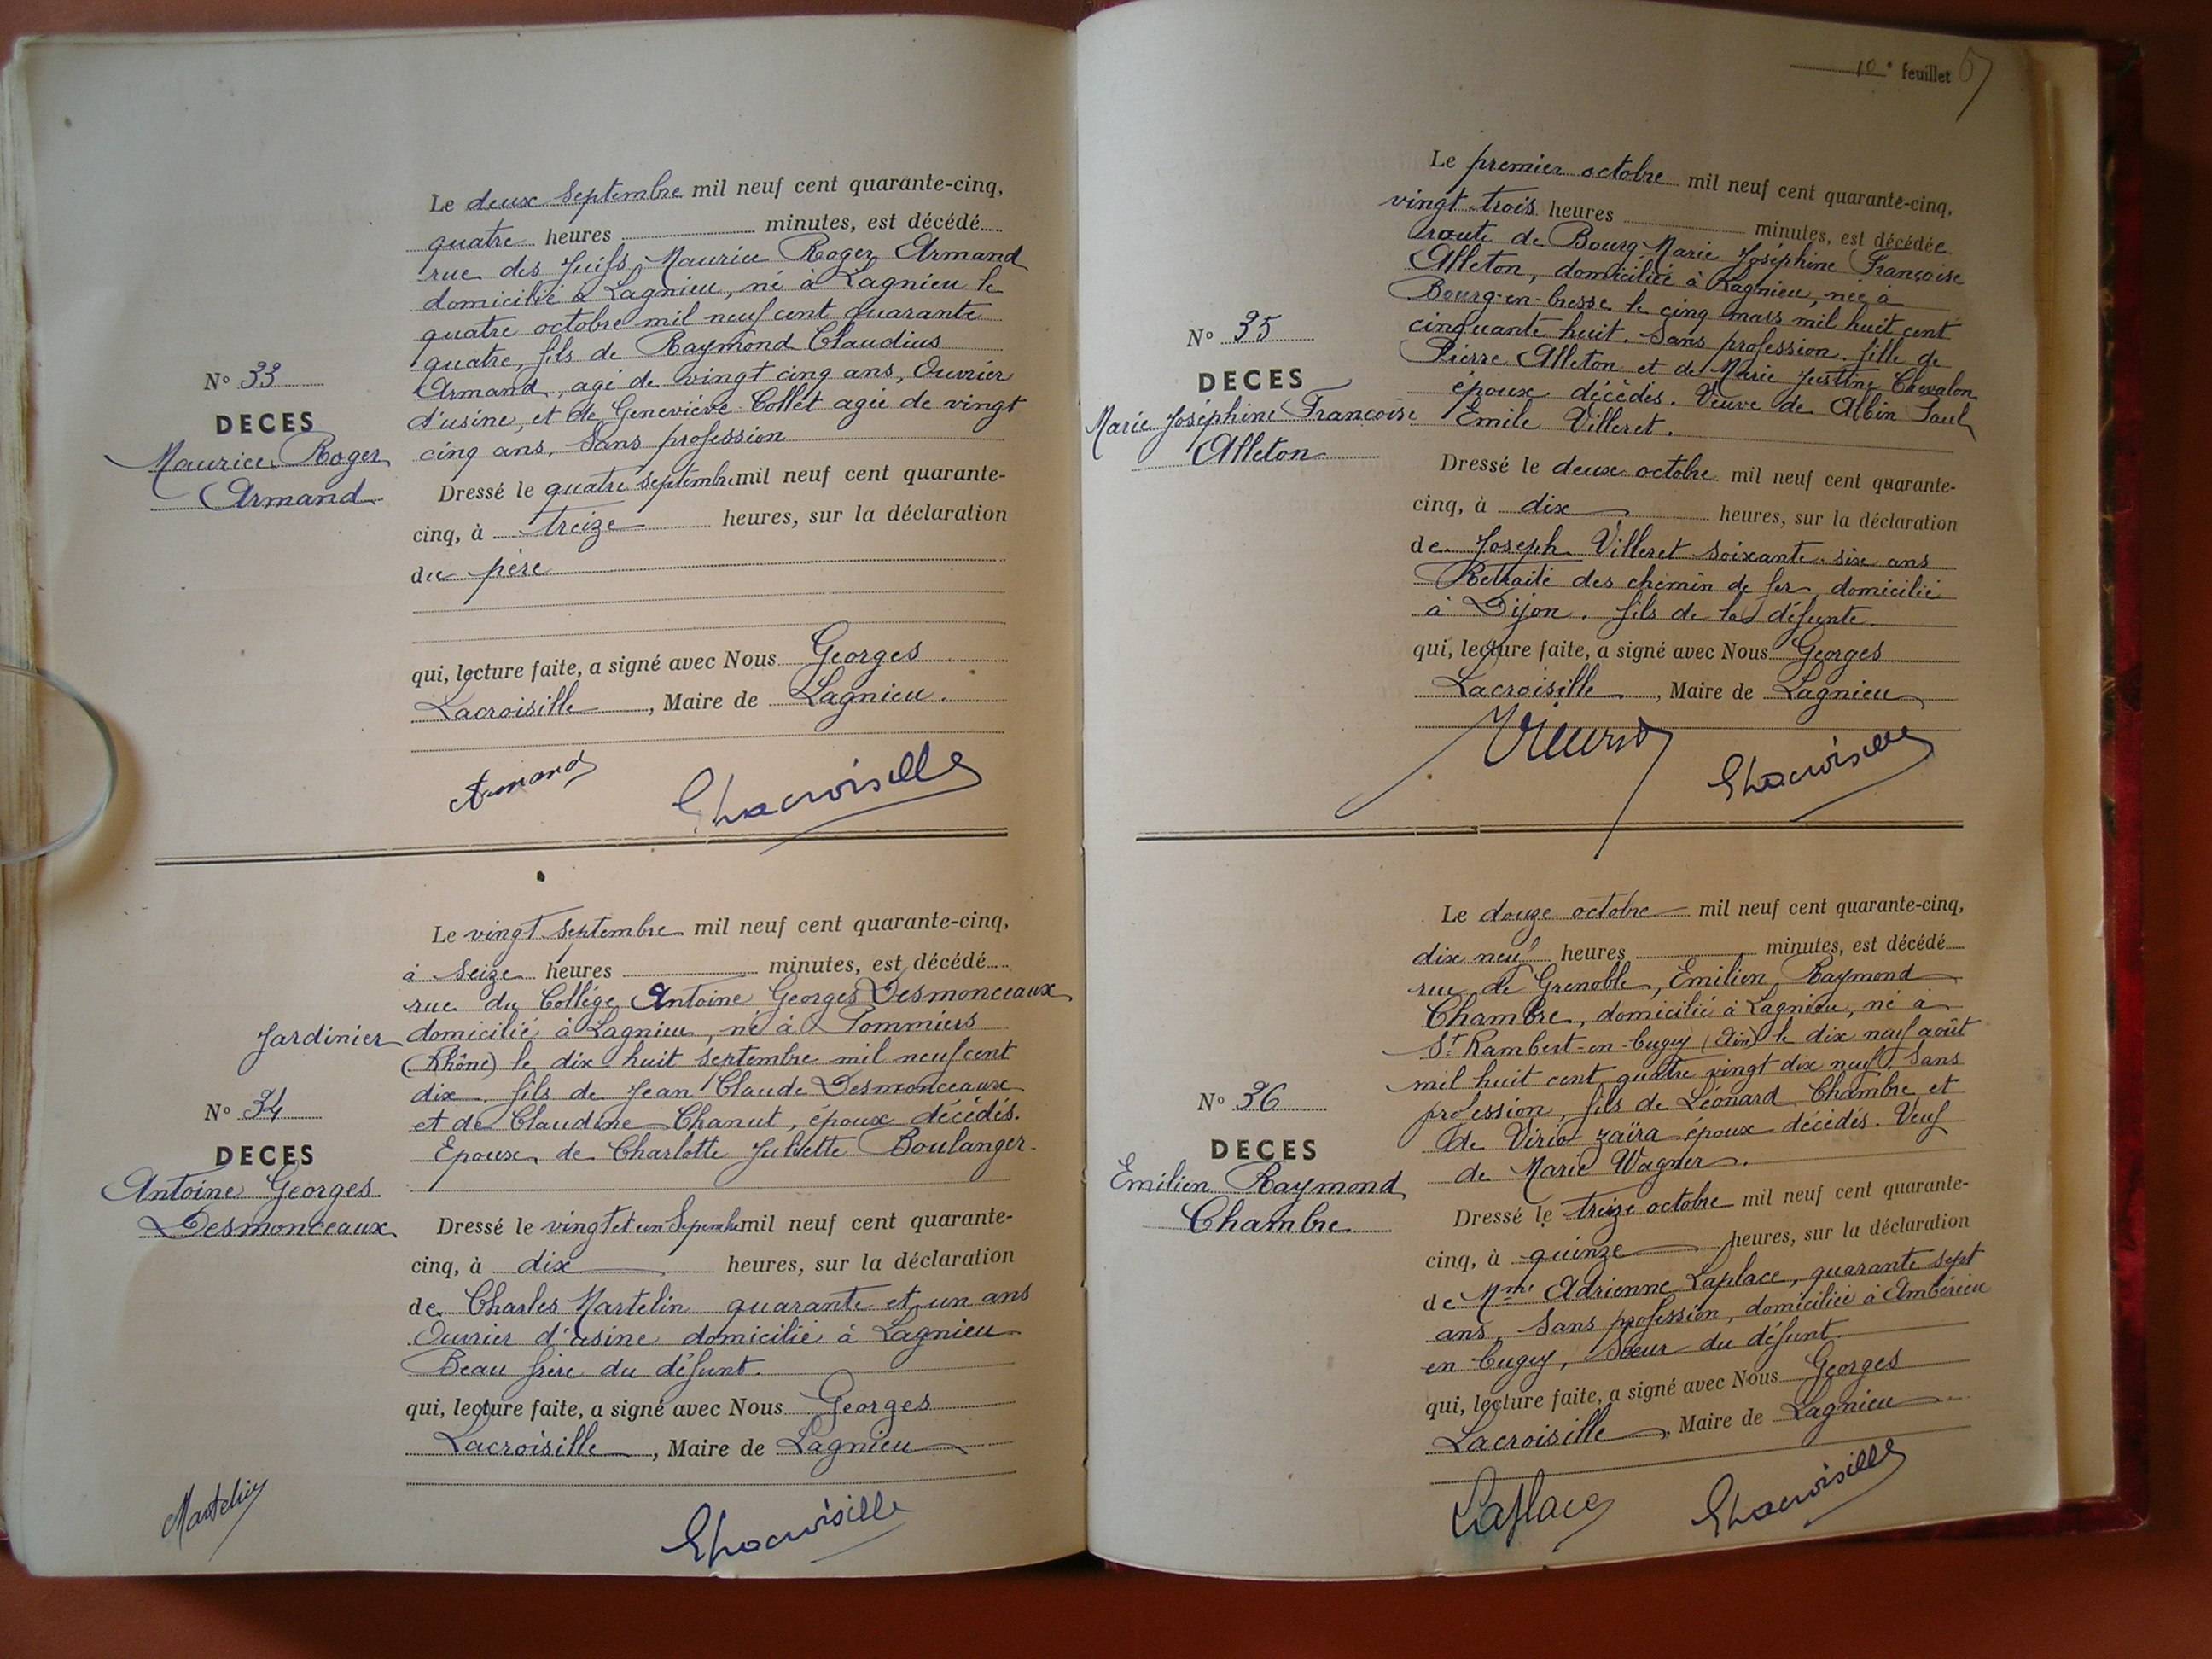 Le deux Septembre mil neuf cent quarante-cinq,
quatre heures minutes, est décédé
rue des Juifs, Maurice Roger Armand
domicilié à Lagnieu, né à Lagnieu le
quatre octobre mil neuf cent quarante
quatre, fils de Raymond Claudius
Armand, agé de vingt cinq ans, Ouvrier
d'usine, et de Geneviève Collet agée de vingt
cinq ans, Sans profession
N° 33
DECES
Maurice Roger
Armand
Dressé le quatre Septembre mil neuf cent quarante-
cinq, à treize heures, sur la déclaration
du père
qui, lecture faite, a signé avec Nous Georges
Lacroisille, Maire de Lagnieu.
Armand
GLacroisille
Le vingt Septembre mil neuf cent quarante-cinq,
à Seize heures minutes, est décédé
rue du Collége Antoine Georges Desmonceaux
Jardinier domicilié à Lagnieu, né à Pommiers
(Rhône) le dix huit septembre mil neuf cent
dix. fils de Jean Claude Desmonceaux
et de Claudine Chanut, époux décédés.
Epoux de Charlotte Juliette Boulanger.
N° 34
DECES
Antoine Georges
Desmonceaux
Dressé le vingt et un Septembre mil neuf cent quarante-
cinq, à dix heures, sur la déclaration
de Charles Martelin quarante et un ans
Ouvrier d'usine domicilié à Lagnieu
Beau frère du défunt.
qui, lecture faite, a signé avec Nous Georges
Lacroisille, Maire de Lagnieu
Martelin
GLacroisille
10e feuillet
Le premier octobre mil neuf cent quarante-cinq,
vingt trois heures minutes, est décédée
route de Bourg Marie Joséphine Françoise
Alleton, domiciliée à Lagnieu, née à
Bourg-en-bresse le cinq mars mil huit cent
cinquante huit. Sans profession. fille de
Pierre Alleton et de Marie Justine Chevalon
époux décédés. Veuve de Albin Paul
Emile Villeret.
N° 35
DECES
Marie Joséphine Françoise
Alleton
Dressé le deux octobre mil neuf cent quarante-
cinq, à dix heures, sur la déclaration
de Joseph Villeret Soixante six ans
Retraité des chemin de fer, domicilié
à Dijon. fils de la défunte.
qui, lecture faite, a signé avec Nous Georges
Lacroisille, Maire de Lagnieu
GLacroisille
Le douze octobre mil neuf cent quarante-cinq,
dix neuf heures minutes, est décédé
rue de Grenoble, Emilien Raymond
Chambre, domicilié à Lagnieu, né à
St Rambert-en-bugey (Ain) le dix neuf août
mil huit cent quatre vingt dix neuf. Sans
profession, fils de Léonard Chambre et
de Virio Zaïra époux décédés. Veuf
de Marie Wagner.
N° 36
DECES
Emilien Raymond
Chambre
Dressé le treize octobre mil neuf cent quarante-
cinq, à quinze heures, sur la déclaration
de Mme Adrienne Laplace, quarante sept
ans, Sans profession, domiciliée à Ambérieu
en bugey, Sœur du défunt.
qui, lecture faite, a signé avec Nous Georges
Lacroisille, Maire de Lagnieu
Laplace
GLacroisille